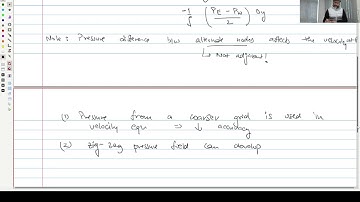 -1/ρ (P_E - P_W / 2) Δy
Note : Pressure difference b/w alternate nodes affects the velocity at
↳ Not adjacent!
(1) Pressure from a coarser grid is used in
velocity eqn ⇒ ↓ accuracy
(2) zig-zag pressure field can develop